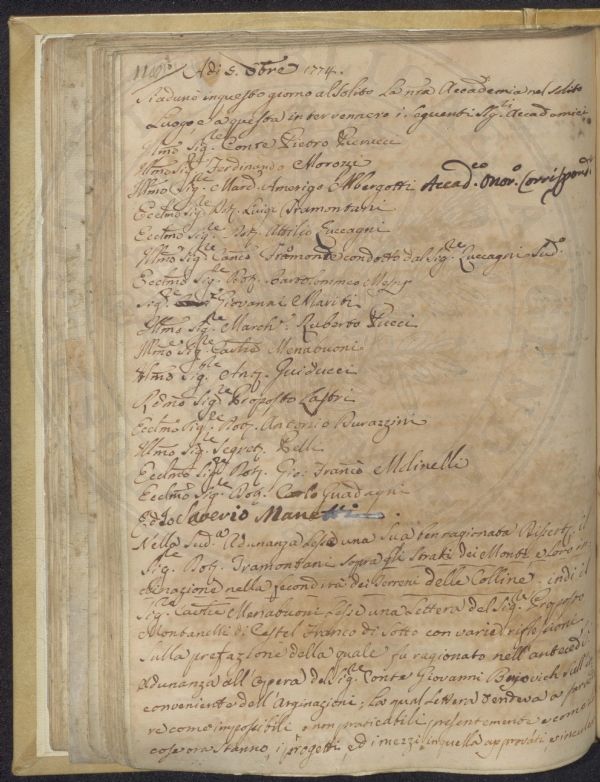 Adì 5. 8bre 1774.
Si adunò in questo giorno al solito la nra Accademia nel solito
Luogo, e a questa intervennero i seguenti Sigri Accademici
Illmo Sigre Conte Pietro Perucci
Illmo Sigre Ferdinando Morozzi
Illmo Sigre March. Amerigo Albergotti Accad.co Onor.o Corrispond.
Ecclmo Sigre Dott. Luigi Tramontani
Ecclmo Sigre Dott. Attilio Zuccagni
Illmo Sigre Canco condotto dal Sigre Zuccagni Sud.o
Ecclmo Sigre Dott. Bartolommeo Mesny
Sigre Giovanni Mariti
Illmo Sigre March. Ruberto Pucci
Illmo Sigre Cavre Menabuoni
Illmo Sigre Guiducci
Rdmo Sigre Proposto Lastri
Ecclmo Sigre Dott. Antonio Durazzini
Illmo Sigre Segret. Pelli
Ecclmo Sigre Dott. Gio. Franco Molinelli
Ecclmo Sigre Dott. Carlo Guadagni
Ed Io Saverio Manetti.
Nella Sud.a Adunanza lesse una sua ben ragionata Dissert.e il
Sigre Dott. Tramontani sopra gli Strati dei Monti e loro in-
clinazione nella fecondità dei Terreni delle Colline, indi il
Sigre Cavre Menabuoni lesse una Lettera del Sigre Proposto
Montanelli di Castel Franco di Sotto con varie riflessioni
sulla prefazione della quale fu ragionato nell'anteced.e
Adunanza all'Opera del Sigre Conte Giovanni sull'in
conveniente dell'Arginazioni; la qual Lettera tendeva a
re come impossibili o non praticabili presentemente e come le
cose ora stanno, i progetti, ed i mezzi in quella approvati e